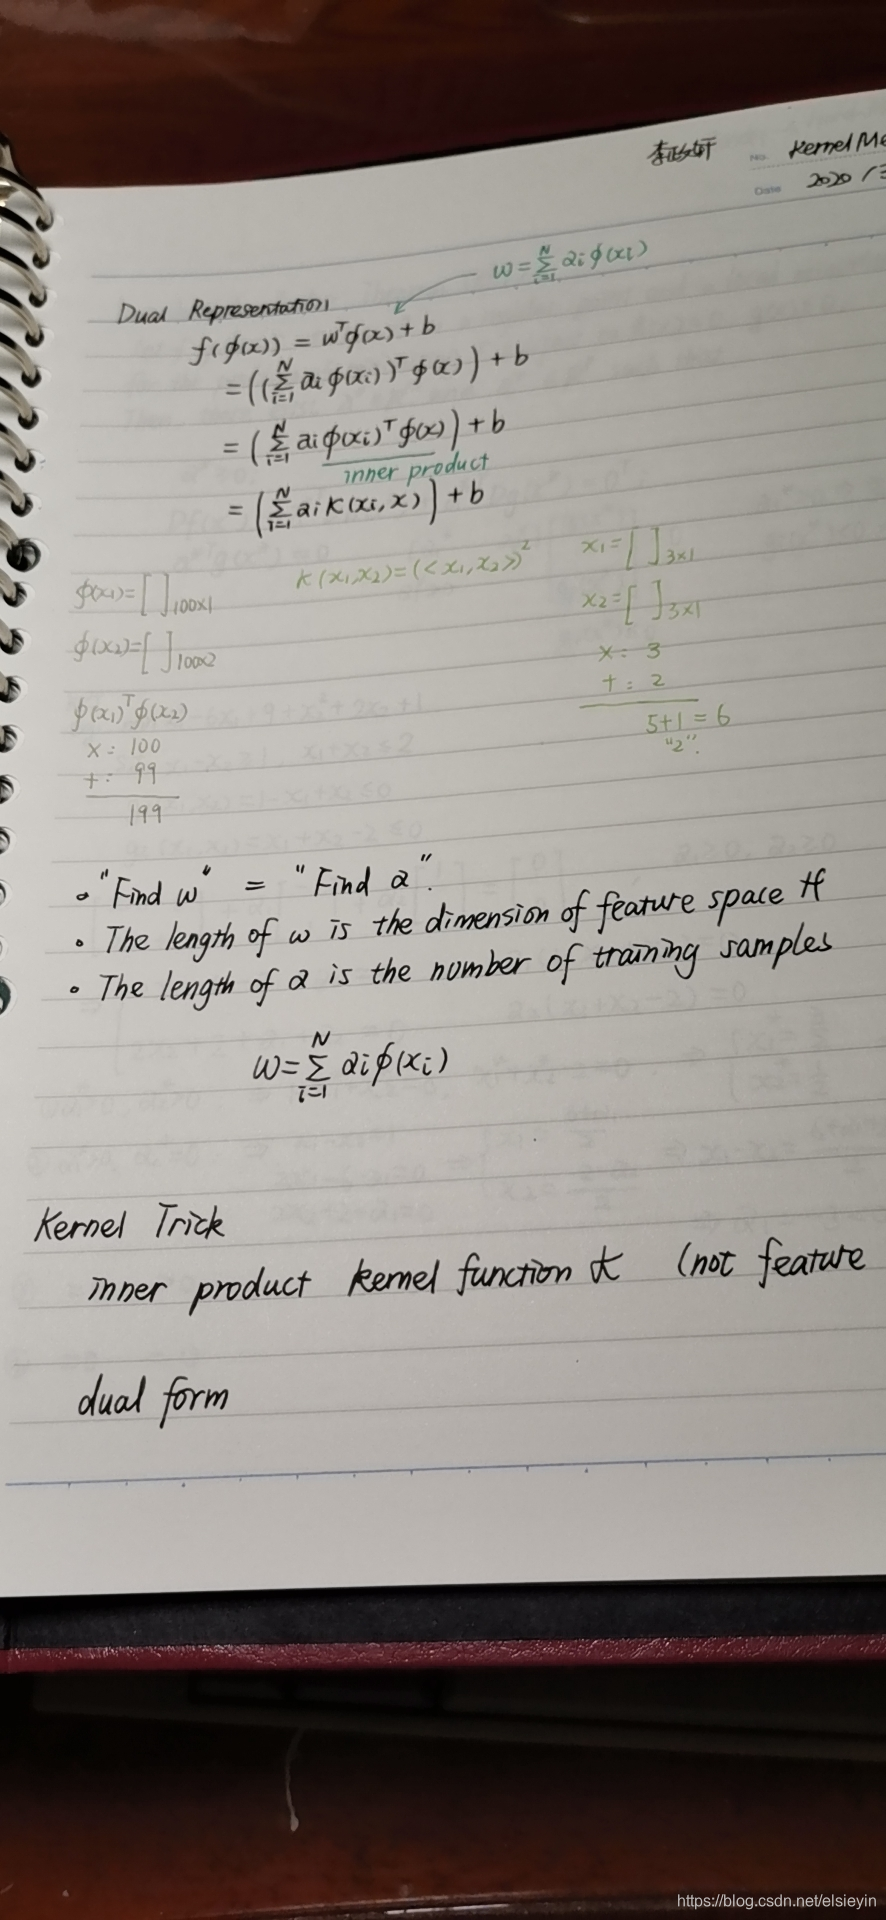 李政轩 No. Kernel Me
Date 2020 / 3
w = \sum_{i=1}^{N} a_i φ(x_i)
Dual Representation
f(φ(x)) = w^T φ(x) + b
= ((\sum_{i=1}^{N} a_i φ(x_i))^T φ(x)) + b
= (\sum_{i=1}^{N} a_i φ(x_i)^T φ(x)) + b
inner product
= (\sum_{i=1}^{N} a_i K(x_i, x)) + b
φ(x_1) = [ ]_{100x1}
φ(x_2) = [ ]_{100x2}
φ(x_1)^T φ(x_2)
x : 100
+ : 99
199
K(x_1, x_2) = (<x_1, x_2>)^2
x_1 = [ ]_{3x1}
x_2 = [ ]_{3x1}
x : 3
+ : 2
5+1 = 6
"2".
• "Find w" = "Find a".
• The length of w is the dimension of feature space H
• The length of a is the number of training samples
w = \sum_{i=1}^{N} a_i φ(x_i)
Kernel Trick
inner product kernel function K (not feature
dual form
https://blog.csdn.net/elsieyin